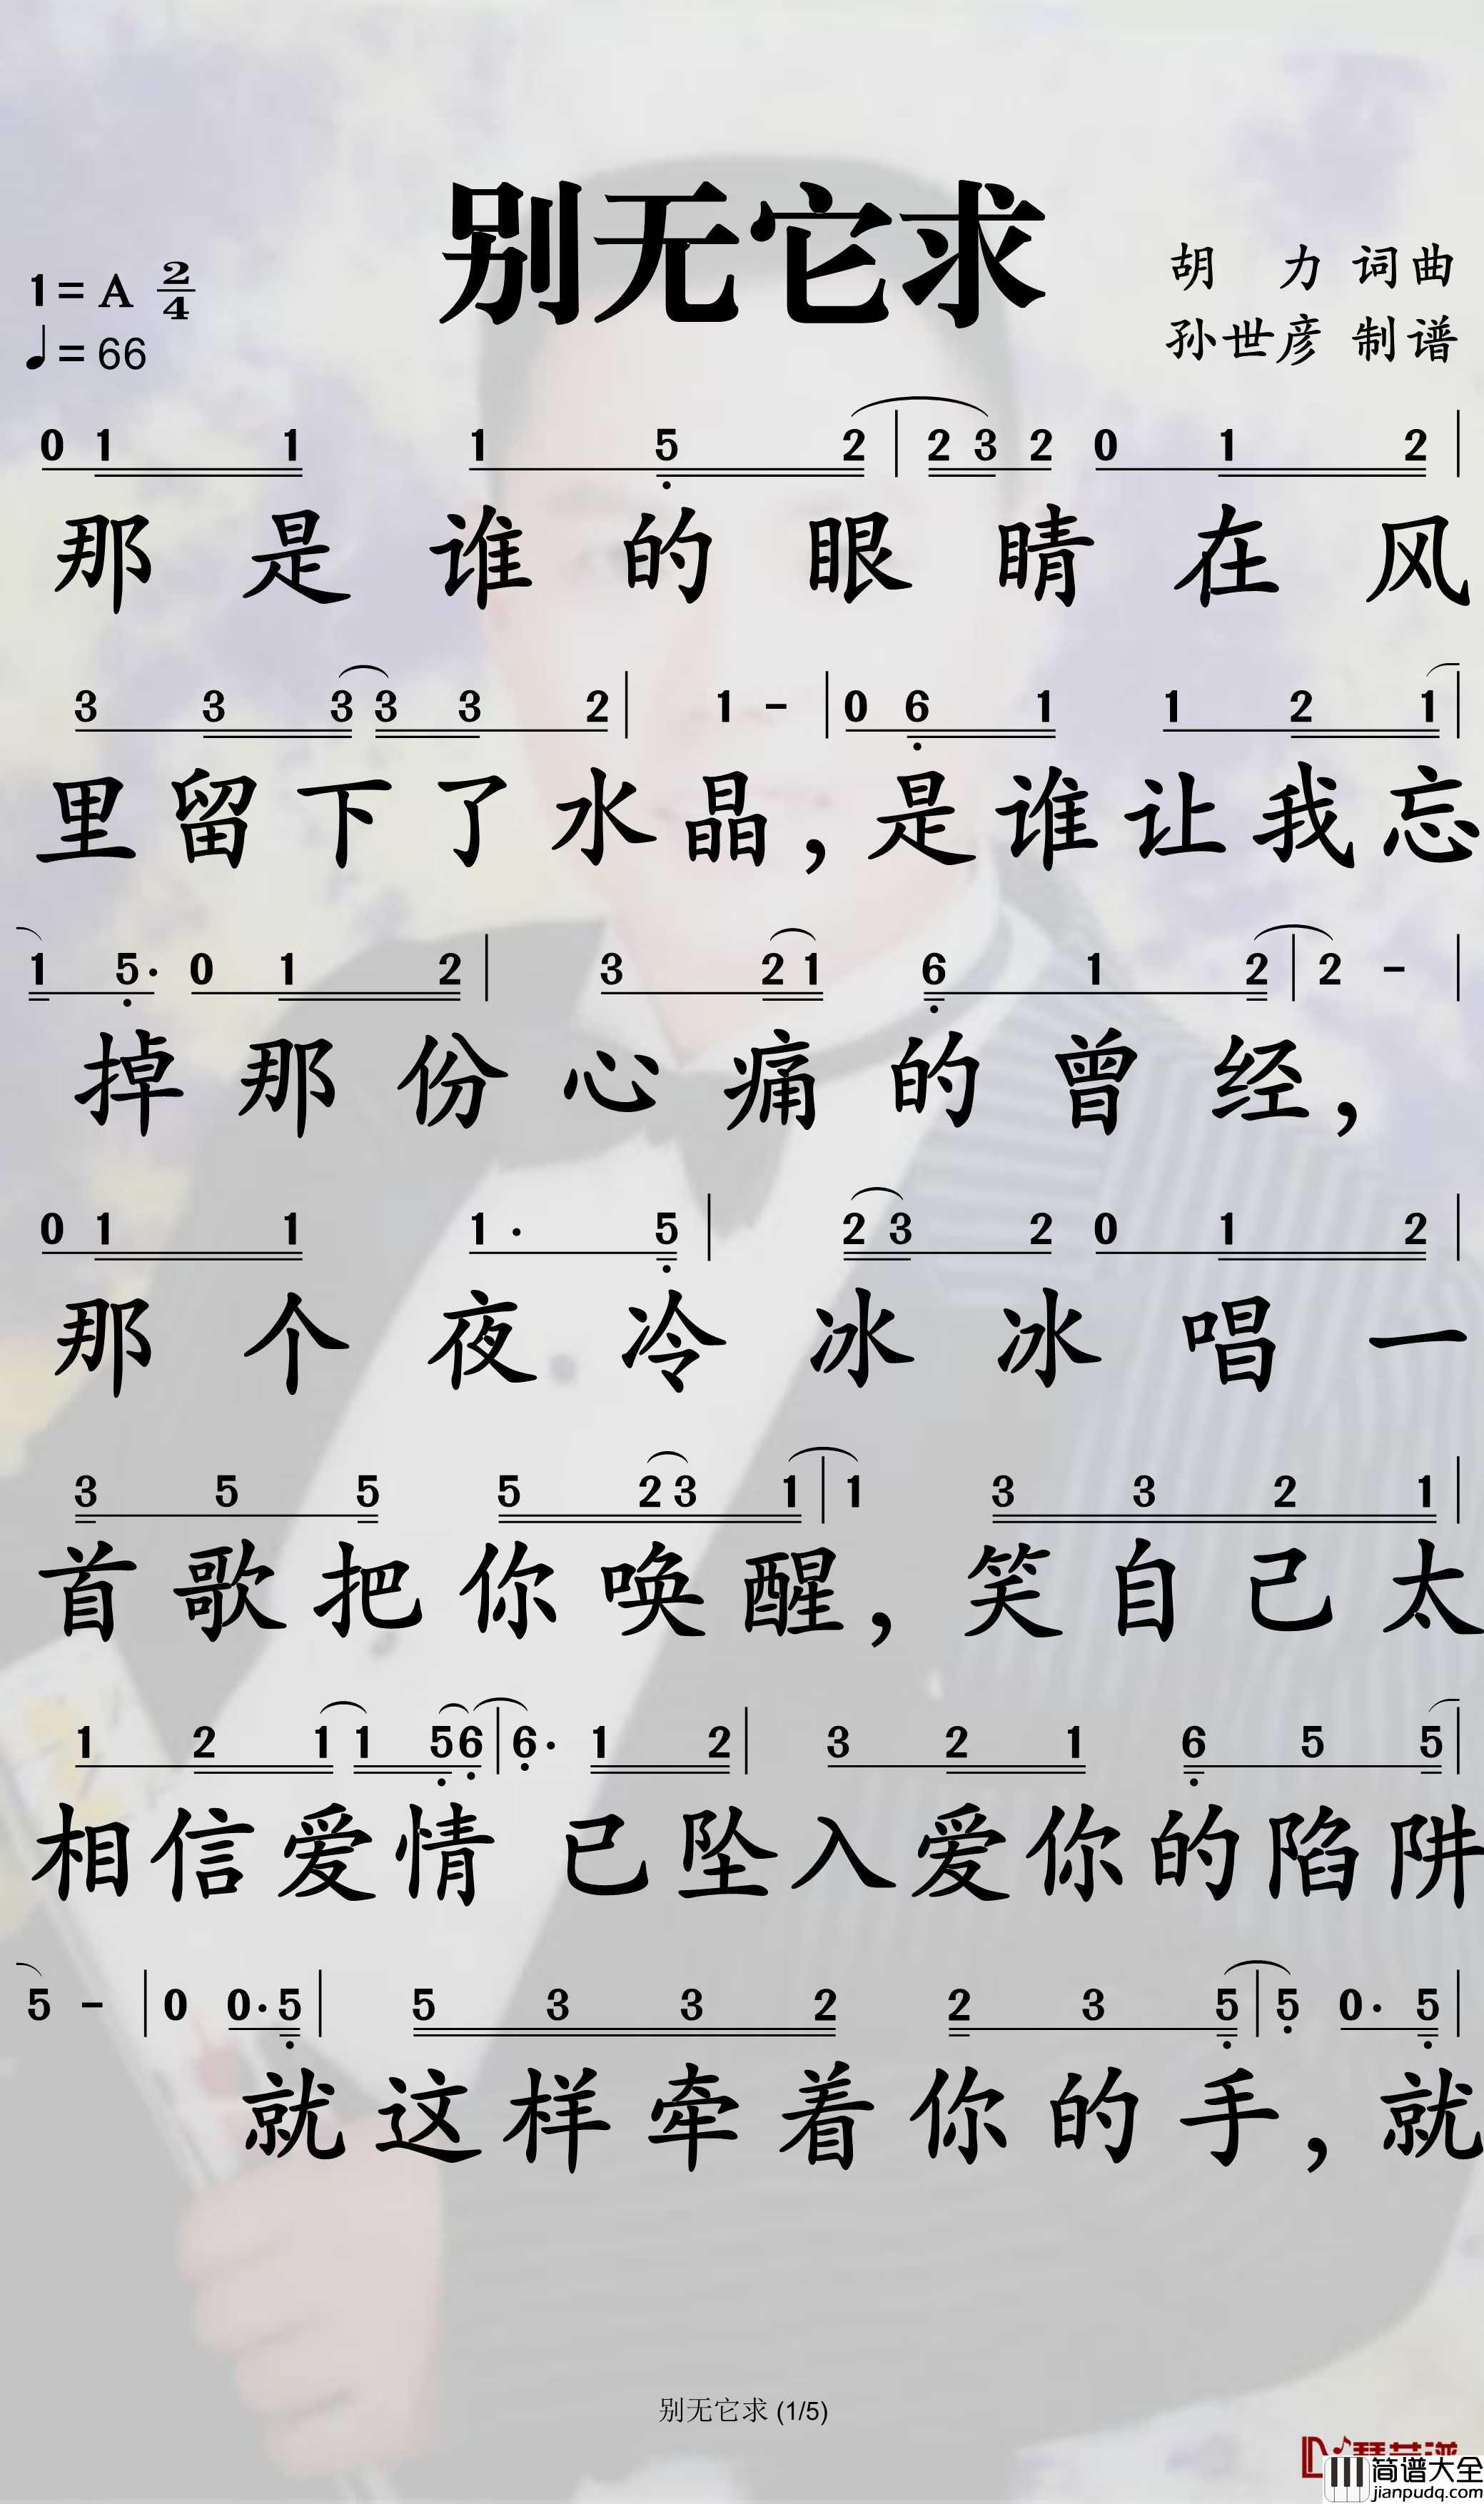 别无它求
1=A 2/4
♩=66
胡 力 词曲
孙世彦 制谱
0 1 1 1 5 2 | 2 3 2 0 1 2 |
那是谁的眼睛在风
3 3 3 3 3 2 | 1 - | 0 6 1 1 2 1 |
里留下了水晶，是谁让我忘
1 5· 0 1 2 | 3 2 1 6 1 2 | 2 - |
掉那份心痛的曾经，
0 1 1 1· 5 | 2 3 2 0 1 2 |
那个夜冷冰冰唱一
3 5 5 5 2 3 1 | 1 3 3 2 1 |
首歌把你唤醒，笑自己太
1 2 1 1 5 6 | 6· 1 2 | 3 2 1 6 5 5 |
相信爱情 已坠入爱你的陷阱
5 - | 0 0· 5 | 5 3 3 2 2 3 5 | 5 0· 5 |
就这样牵着你的手，就
别无它求 (1/5)
简谱大全
jianpudq.com